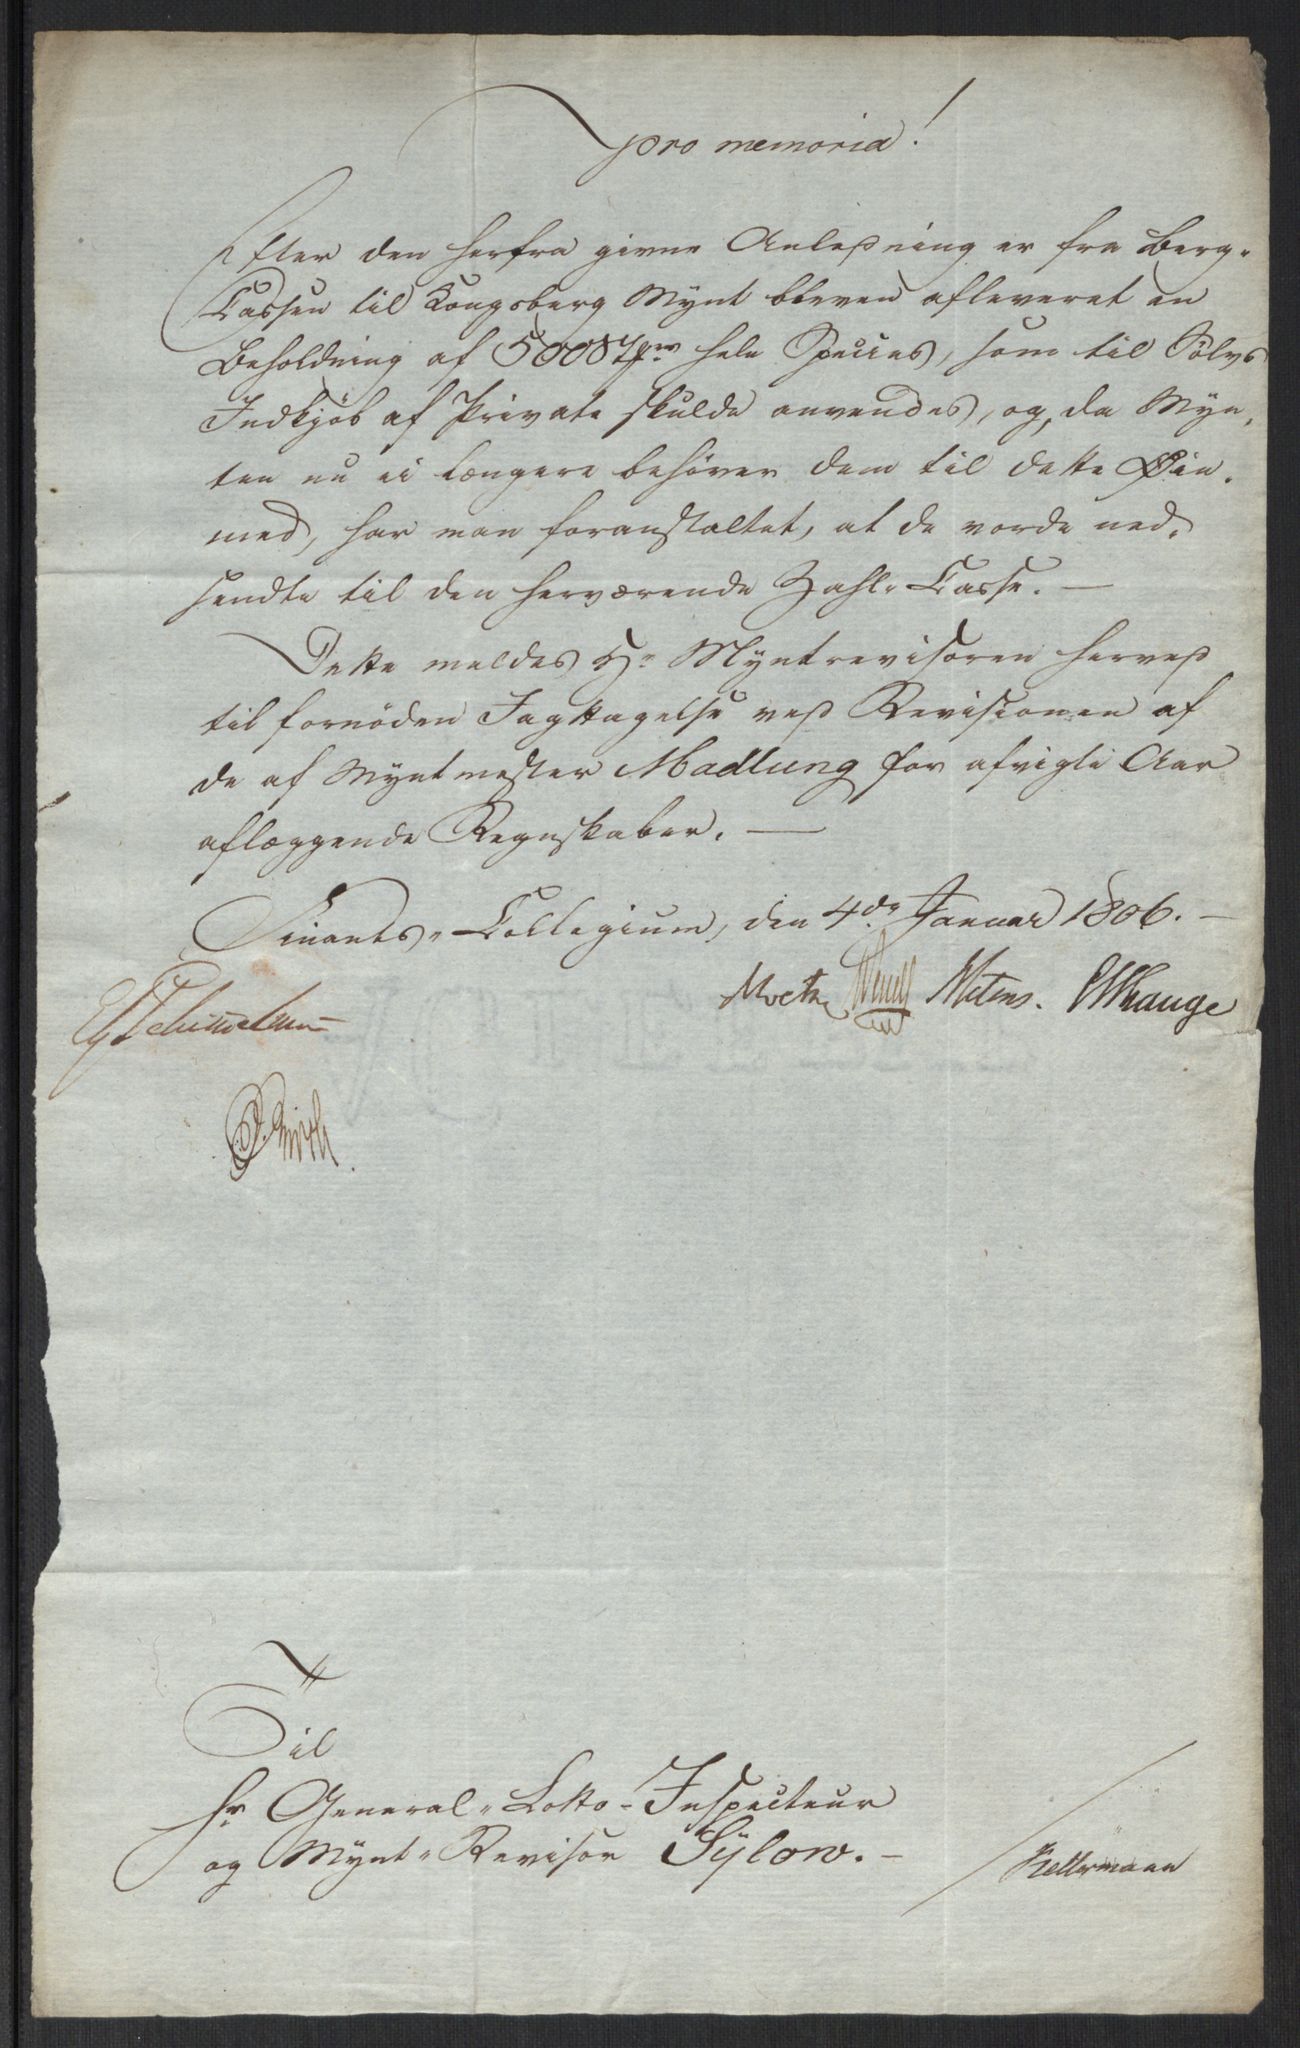 pro memoria!
Efter den herfra givne Anledning er fra Berg-
Cassen til Kongsberg Mynt bleven afleveret en
Beholdning af 5000 hele Species, som til Sölvs
Indkjöb af Private skulde anvendes, og, da Myn-
ten nu ei længere behöver dem til dette Øie-
med, har man foranstaltet, at de vorde ned-
sendte til den herværende Zahl-Casse. —
Dette meldes Hr Myntrevisoren herved
til fornöden Iagttagelse ved Revisionen af
de af Myntmester Madlung for afvigte Aar
aflæggende Regnskaber. —
Finants-Collegium, den 4de Januar 1806. —
Schimmelmann
Til
Hr General-Lotto-Inspecteur
og Mynt-Revisor Sylow. —
Kellermann